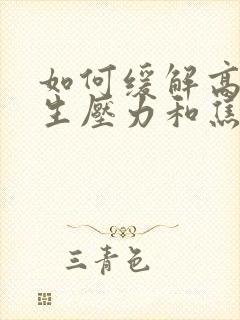 如何缓解高
生壓力和焦
三青色